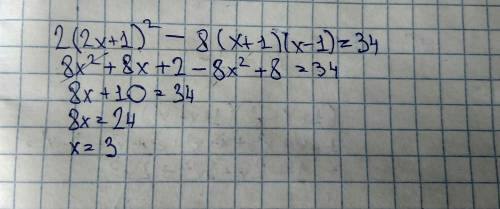 2(2x+1)² - 8(x+1)(x-1)=34
8x²+8x+2-8x²+8=34
8x+10=34
8x=24
x=3